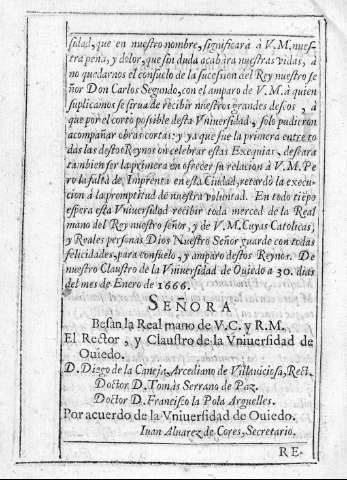 sidad, que en nuestro nombre, significarà à V.M. nues-
tra pena, y dolor, que sin duda acabara nuestras vidas, à
no quedarnos el consuelo de la sucession del Rey nuestro se
ñor Don Carlos Segundo, con el amparo de V.M. à quien
suplicamos se sirua de recibir nuestros grandes deseos, à
que por el corto possible desta Vniuersidad, solo pudieron
acompañar obras cortas: y ya que fue la primera entre to
das las destos Reynos en celebrar estas Exequias, desearà
tambien ser la primera en ofrecer su relacion à V.M. Pe
ro la falta de Imprenta en esta Ciudad, retardò la execu-
cion à la promptitud de nuestra voluntad. En todo tiẽpo
espera esta Vniuersidad recibir toda merced de la Real
mano del Rey nuestro señor, y de V.M. Cuyas Catolicas,
y Reales personas Dios Nuestro Señor guarde con todas
felicidades, para consuelo, y amparo destos Reynos. De
nuestro Claustro de la Vniuersidad de Ouiedo a 30. dias
del mes de Enero de 1666.
SEÑORA
Besan la Real mano de V.C. y R.M.
El Rector, y Claustro de la Vniuersidad de
Ouiedo.
D. Diego de la Caneja, Arcediano de Villauiciosa, Rect.
Doctor D. Tomàs Serrano de Paz.
Doctor D. Francisco la Pola Arguelles.
Por acuerdo de la Vniuersidad de Ouiedo.
Iuan Aluarez de Cores, Secretario.
RE-